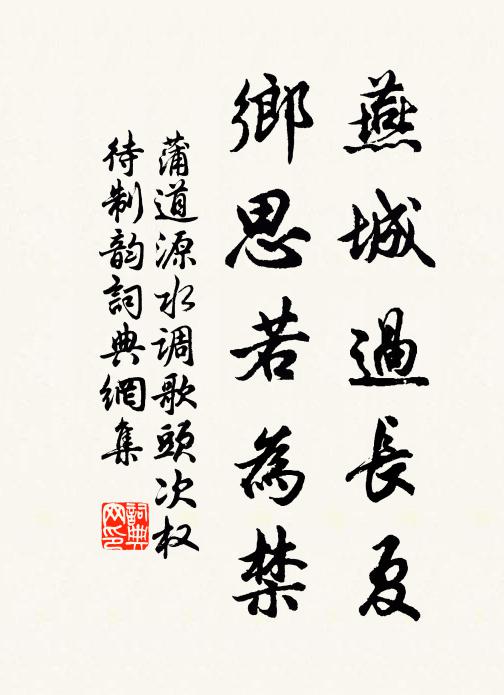 燕城過長夏
鄉思若為禁
蒲道源水调歌頭次权
待制韵詞典網集
詞典网印